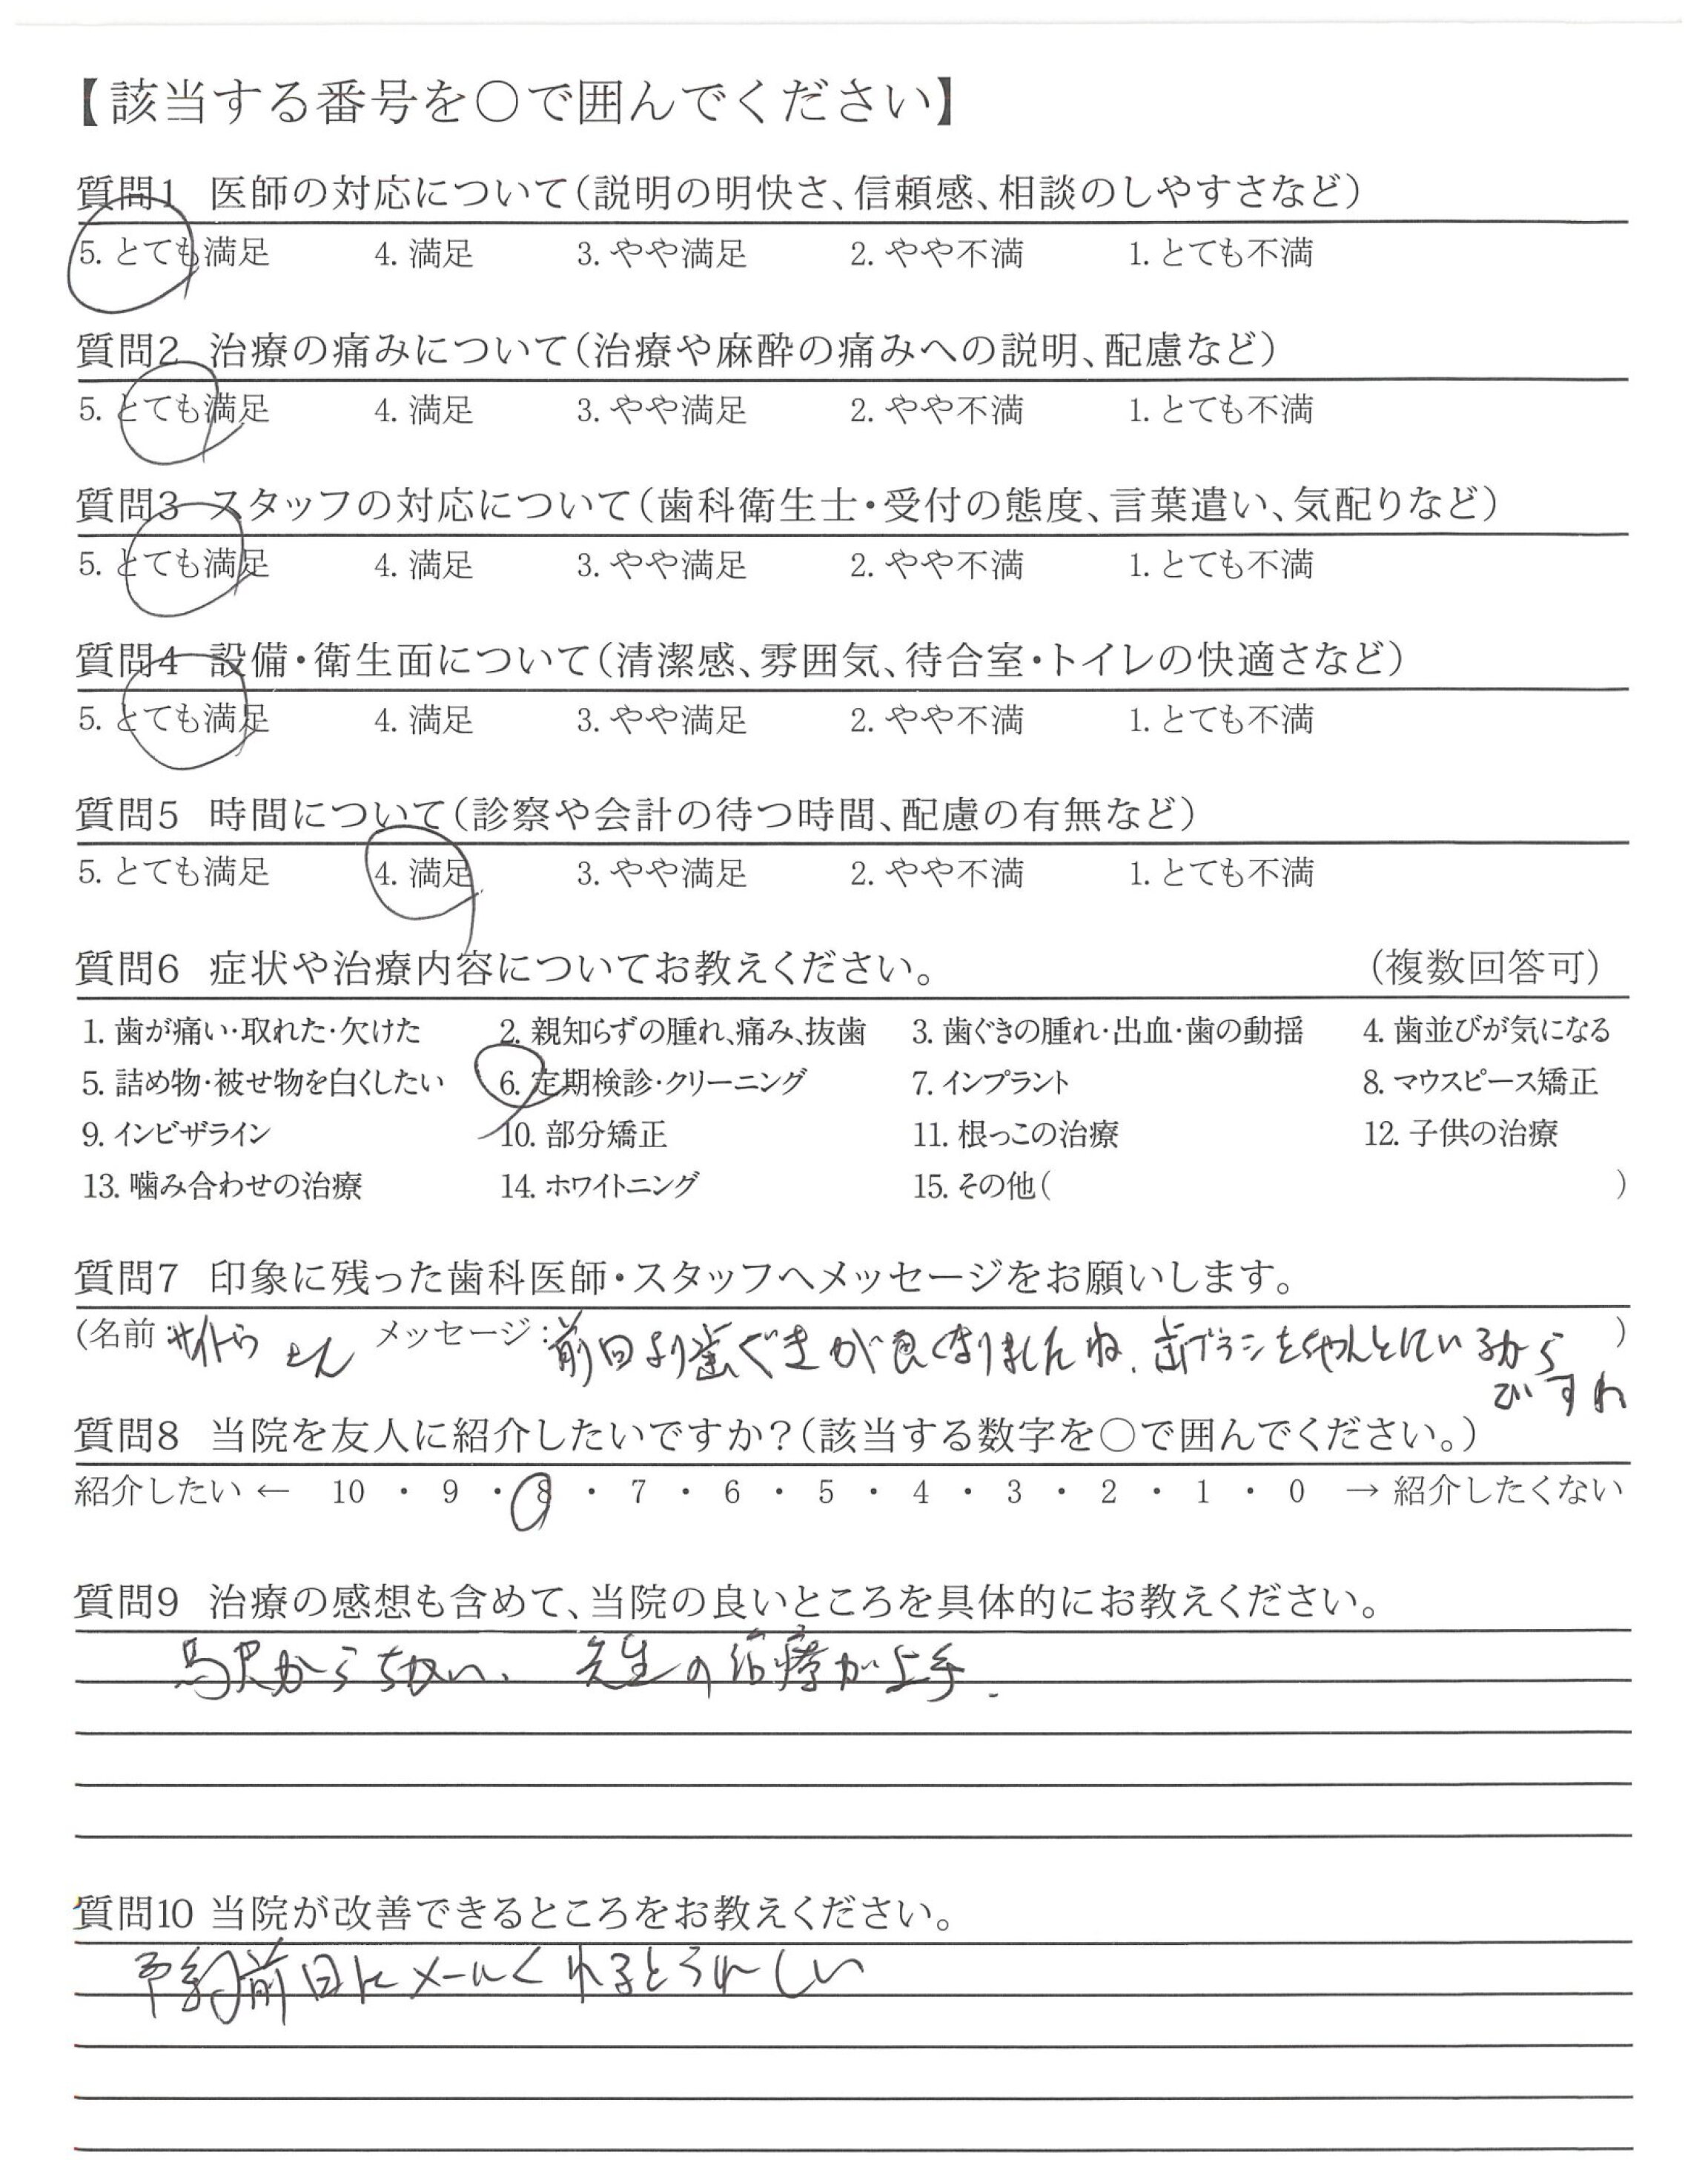 【該当する番号を〇で囲んでください】
質問1 医師の対応について(説明の明快さ、信頼感、相談のしやすさなど)
5. とても満足 4. 満足 3. やや満足 2. やや不満 1. とても不満
質問2 治療の痛みについて(治療や麻酔の痛みへの説明、配慮など)
5. とても満足 4. 満足 3. やや満足 2. やや不満 1. とても不満
質問3 スタッフの対応について(歯科衛生士・受付の態度、言葉遣い、気配りなど)
5. とても満足 4. 満足 3. やや満足 2. やや不満 1. とても不満
質問4 設備・衛生面について(清潔感、雰囲気、待合室・トイレの快適さなど)
5. とても満足 4. 満足 3. やや満足 2. やや不満 1. とても不満
質問5 時間について(診察や会計の待つ時間、配慮の有無など)
5. とても満足 4. 満足 3. やや満足 2. やや不満 1. とても不満
質問6 症状や治療内容についてお教えください。 (複数回答可)
1. 歯が痛い・取れた・欠けた 2. 親知らずの腫れ、痛み、抜歯 3. 歯ぐきの腫れ・出血・歯の動揺 4. 歯並びが気になる
5. 詰め物・被せ物を白くしたい 6. 定期検診・クリーニング 7. インプラント 8. マウスピース矯正
9. インビザライン 10. 部分矯正 11. 根っこの治療 12. 子供の治療
13. 噛み合わせの治療 14. ホワイトニング 15. その他( )
質問7 印象に残った歯科医師・スタッフへメッセージをお願いします。
(名前: さん メッセージ:前回より歯ぐきが良くなりましたね、歯ブラシをちゃんとしているから )
ですね
質問8 当院を友人に紹介したいですか?(該当する数字を〇で囲んでください。)
紹介したい ← 10 ・ 9 ・ 8 ・ 7 ・ 6 ・ 5 ・ 4 ・ 3 ・ 2 ・ 1 ・ 0 → 紹介したくない
質問9 治療の感想も含めて、当院の良いところを具体的にお教えください。
駅からちかい、先生の治療が上手.
質問10 当院が改善できるところをお教えください。
予約前日にメールくれるとうれしい